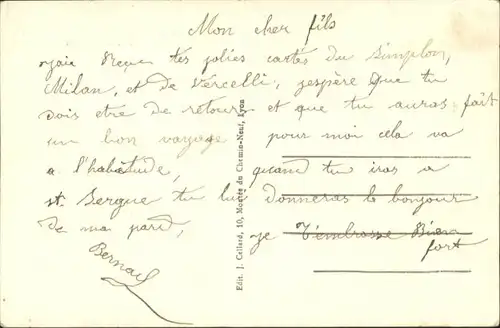 Mon cher fils
j'aie Reçue tes jolies cartes du Simplon,
Milan, et De Vercelli, jespère que tu
dois etre de retour et que tu auras fait
un bon voyage pour moi cela va
a l'habatude, quand tu iras a
st. Sergue tu lui donneras le bonjour
de ma pard, je T'embrasse Bien
fort
Bernard
Edit. J. Cellard, 10, Montée du Chemin-Neuf, Lyon